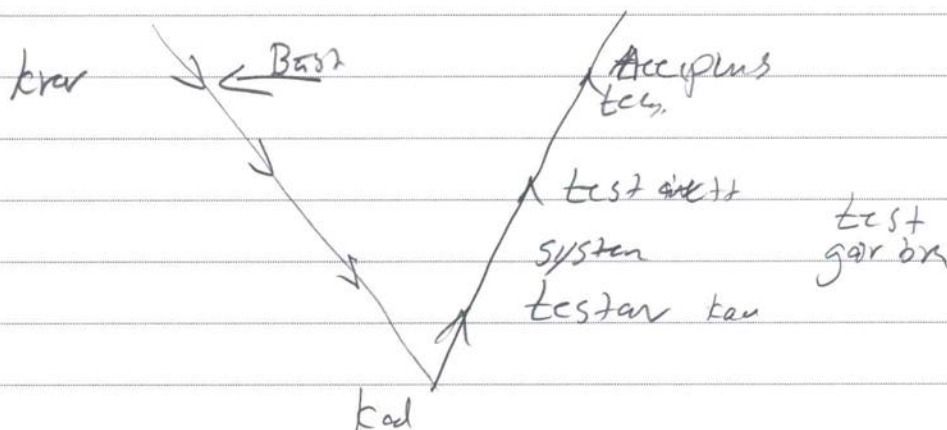 krav
Bäst
Acceptans
test
test
system
testar
test
går bra
kod